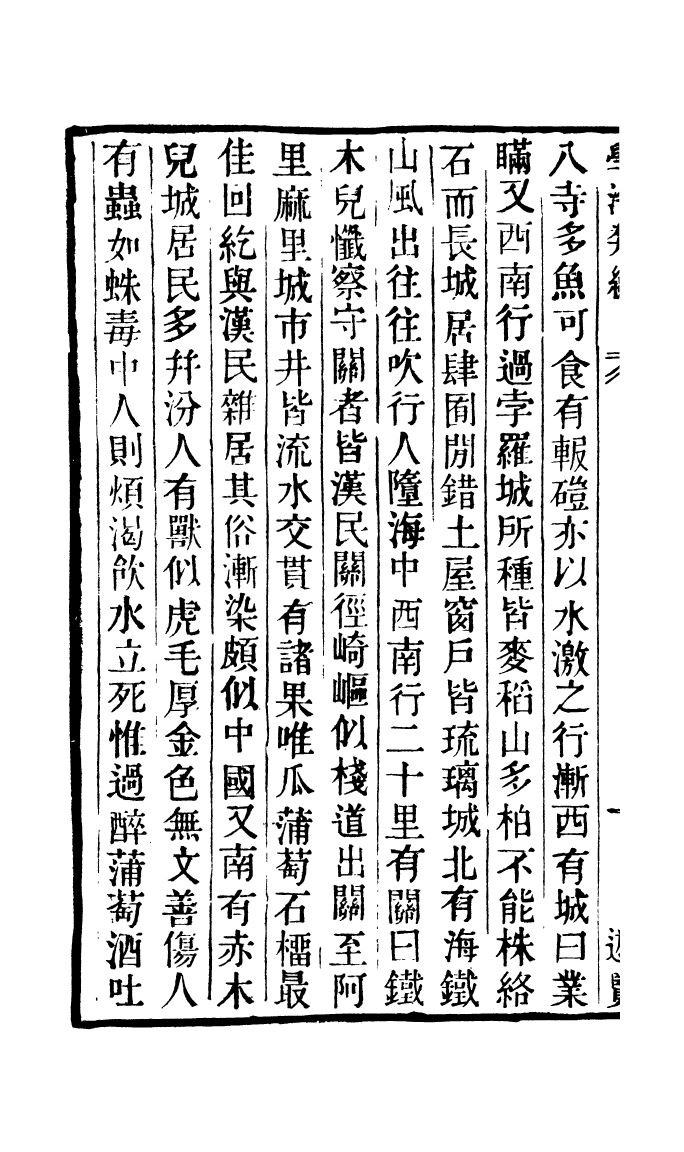 八寺多魚可食有輾磑亦以水激之行漸西有城曰業
瞞又西南行過孛羅城所種皆麥稻山多柏不能株絡
石而長城居肆囿閒錯土屋窗戶皆琉璃城北有海鐵
山風出往往吹行人墮海中西南行二十里有關曰鐵
木兒懺察守關者皆漢民關徑崎嶇似棧道出關至阿
里麻里城市井皆流水交貫有諸果唯瓜蒲萄石榴最
佳回紇與漢民雜居其俗漸染頗似中國又南有赤木
兒城居民多幷汾人有獸似虎毛厚金色無文善傷人
有蟲如蛛毒中人則煩渴飲水立死惟過醉蒲萄酒吐